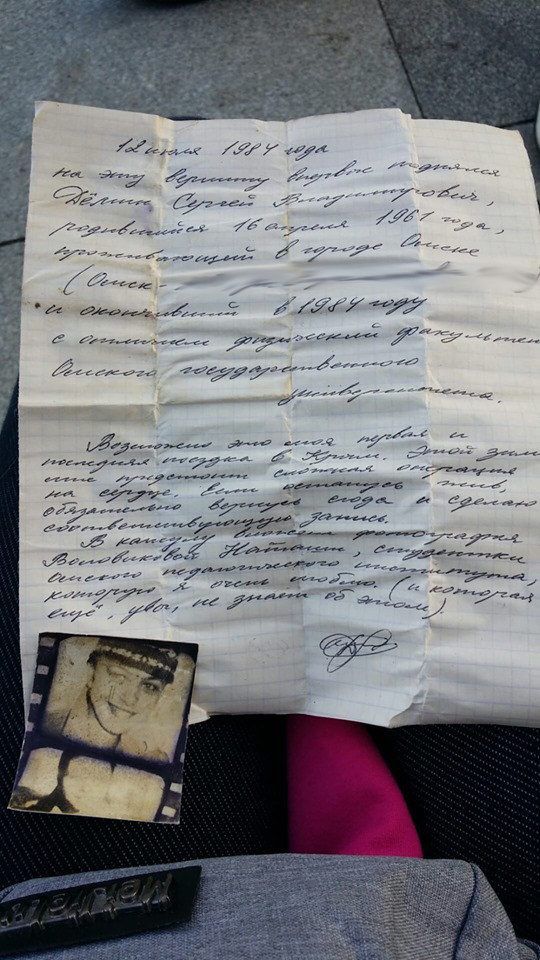 12 июля 1984 года
на эту вершину впервые поднялся
Дёмин Сергей Владимирович,
родившийся 16 апреля 1961 года,
проживающий в городе Омске
(Омск-
и окончивший в 1984 году
с отличием физический факультет
Омского государственного
университета.
Возможно это моя первая и
последняя поездка в Крым. Этой зимой
мне предстоит сложная операция
на сердце. Если останусь жив,
обязательно вернусь сюда и сделаю
соответствующую запись.
В капсулу вложена фотография
Воловиковой Наташи, студентки
Омского педагогического института,
которую я очень люблю (и которая
ещё, увы, не знает об этом)